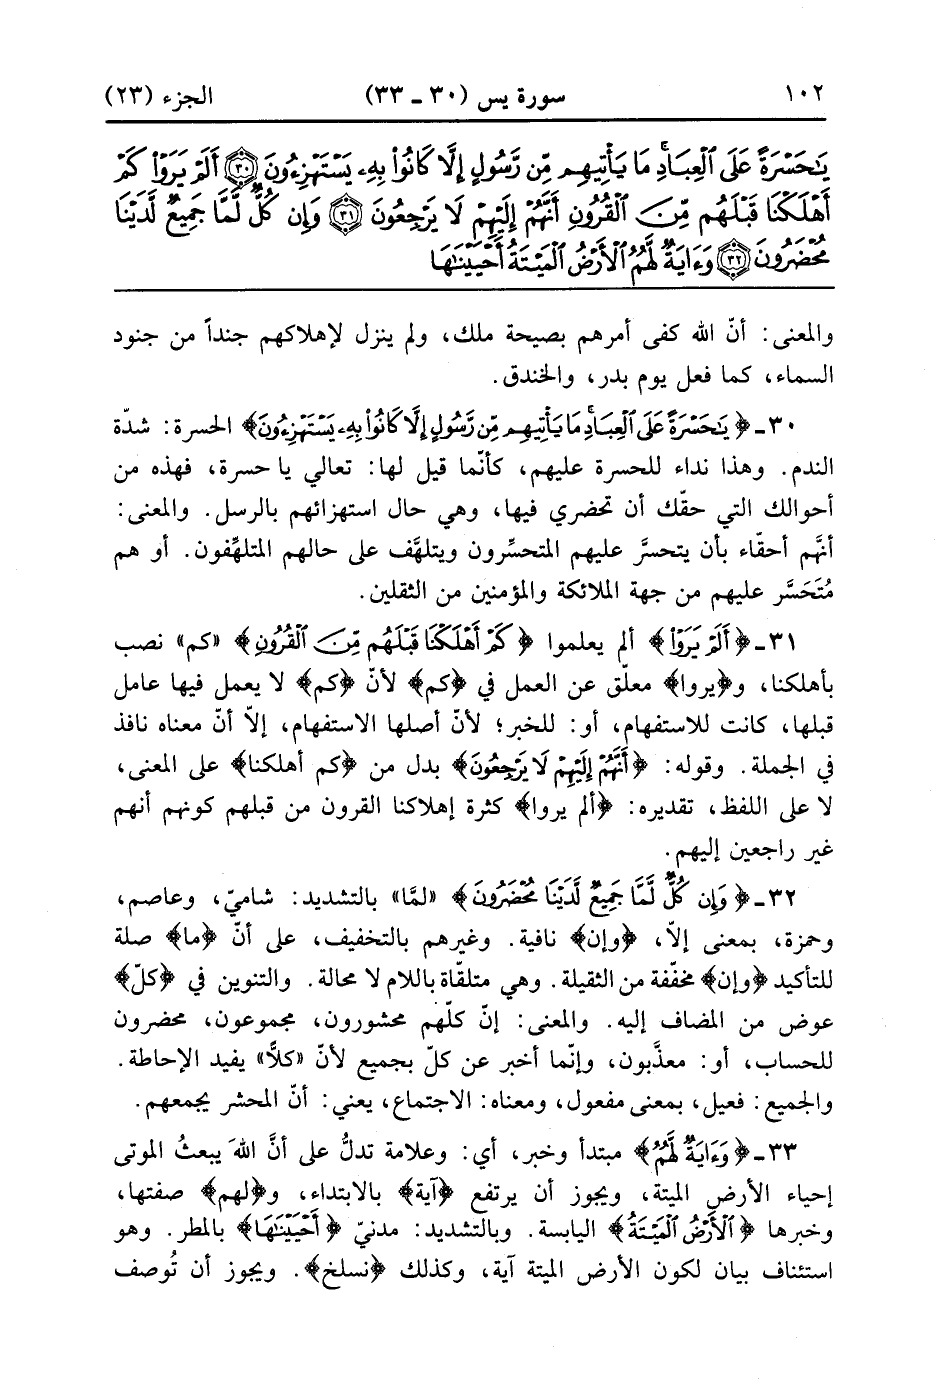 ١٠٢ سورة يس (٣٠ ـ ٣٣) الجزء (٢٣)
يَٰحَسْرَةً عَلَى ٱلْعِبَادِ مَا يَأْتِيهِم مِّن رَّسُولٍ إِلَّا كَانُوا۟ بِهِۦ يَسْتَهْزِءُونَ ﴿٣٠﴾ أَلَمْ يَرَوْا۟ كَمْ
أَهْلَكْنَا قَبْلَهُم مِّنَ ٱلْقُرُونِ أَنَّهُمْ إِلَيْهِمْ لَا يَرْجِعُونَ ﴿٣١﴾ وَإِن كُلٌّ لَّمَّا جَمِيعٌ لَّدَيْنَا
مُحْضَرُونَ ﴿٣٢﴾ وَءَايَةٌ لَّهُمُ ٱلْأَرْضُ ٱلْمَيْتَةُ أَحْيَيْنَٰهَا
والمعنى: أنّ الله كفى أمرهم بصيحة ملك، ولم ينزل لإهلاكهم جنداً من جنود
السماء، كما فعل يوم بدر، والخندق.
٣٠ـ ﴿يَٰحَسْرَةً عَلَى ٱلْعِبَادِ مَا يَأْتِيهِم مِّن رَّسُولٍ إِلَّا كَانُوا۟ بِهِۦ يَسْتَهْزِءُونَ﴾ الحسرة: شدّة
الندم. وهذا نداء للحسرة عليهم، كأنّما قيل لها: تعالي يا حسرة، فهذه من
أحوالك التي حقّك أن تحضري فيها، وهي حال استهزائهم بالرسل. والمعنى:
أنهَّم أحقّاء بأن يتحسرَّ عليهم المتحسِّرون ويتلهَّف على حالهم المتلهِّفون. أو هم
مُتَحَسَّر عليهم من جهة الملائكة والمؤمنين من الثقلين.
٣١ـ ﴿أَلَمْ يَرَوْا۟﴾ ألم يعلموا ﴿كَمْ أَهْلَكْنَا قَبْلَهُم مِّنَ ٱلْقُرُونِ﴾ «كم» نصب
بأهلكنا، و﴿يروا﴾ معلّق عن العمل في ﴿كم﴾ لأنّ ﴿كم﴾ لا يعمل فيها عامل
قبلها، كانت للاستفهام، أو: للخبر؛ لأنّ أصلها الاستفهام، إلاّ أنّ معناه نافذ
في الجملة. وقوله: ﴿أَنَّهُمْ إِلَيْهِمْ لَا يَرْجِعُونَ﴾ بدل من ﴿كم أهلكنا﴾ على المعنى،
لا على اللفظ، تقديره: ﴿ألم يروا﴾ كثرة إهلاكنا القرون من قبلهم كونهم أنهم
غير راجعين إليهم.
٣٢ـ ﴿وَإِن كُلٌّ لَّمَّا جَمِيعٌ لَّدَيْنَا مُحْضَرُونَ﴾ «لمَّا» بالتشديد: شاميّ، وعاصم،
وحمزة، بمعنى إلاّ، ﴿وإن﴾ نافية. وغيرهم بالتخفيف، على أنّ ﴿ما﴾ صلة
للتأكيد ﴿وإن﴾ مخفّفة من الثقيلة. وهي متلقّاة باللام لا محالة. والتنوين في ﴿كلّ﴾
عوض من المضاف إليه. والمعنى: إنّ كلّهم محشورون، مجموعون، محضرون
للحساب، أو: معذَّبون، وإنّما أخبر عن كلّ بجميع لأنّ «كلًّا» يفيد الإحاطة.
والجميع: فعيل، بمعنى مفعول، ومعناه: الاجتماع، يعني: أنّ المحشر يجمعهم.
٣٣ـ ﴿وَءَايَةٌ لَّهُمُ﴾ مبتدأ وخبر، أي: وعلامة تدلُّ على أنَّ اللهَ يبعثُ الموتى
إحياء الأرض الميتة، ويجوز أن يرتفع ﴿آية﴾ بالابتداء، و﴿لهم﴾ صفتها،
وخبرها ﴿ٱلْأَرْضُ ٱلْمَيْتَةُ﴾ اليابسة. وبالتشديد: مدنيّ ﴿أَحْيَيْنَٰهَا﴾ بالمطر. وهو
استئناف بيان لكون الأرض الميتة آية، وكذلك ﴿نسلخ﴾. ويجوز أن تُوصف